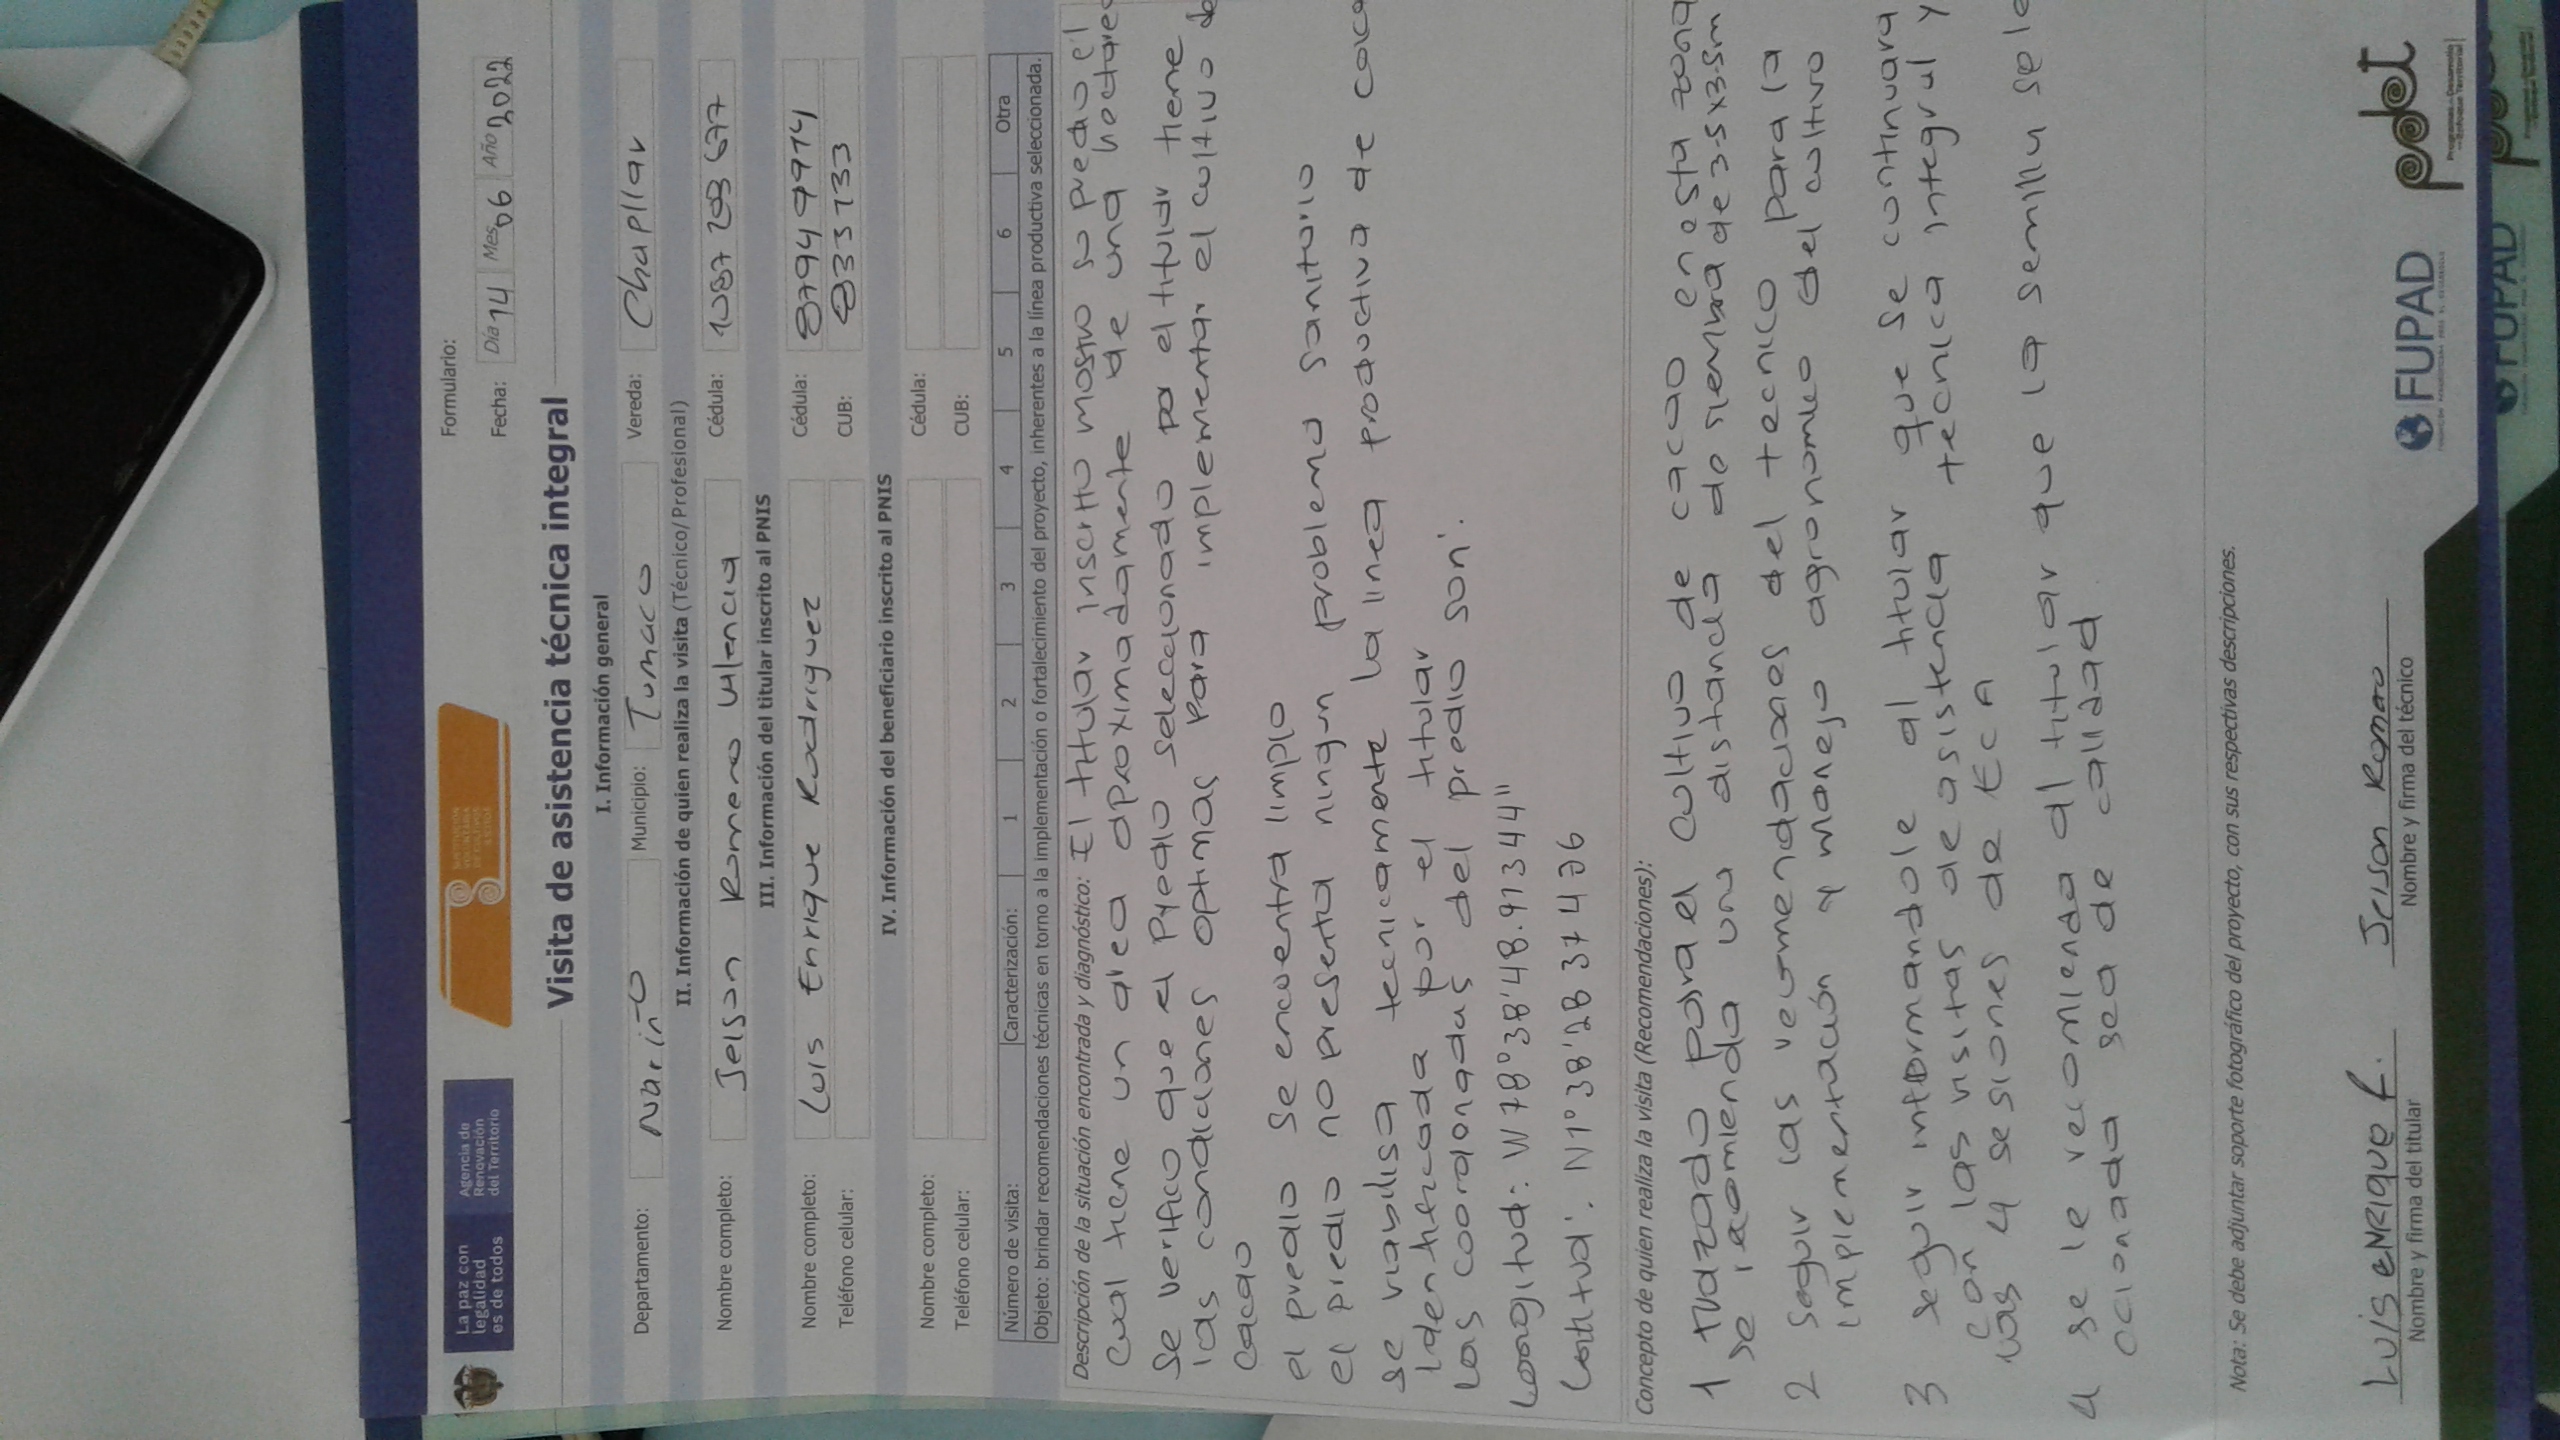 La paz con
legalidad
es de todos
Agencia de
Renovación
del Territorio
SUSTITUCIÓN
VOLUNTARIA
DE CULTIVOS
ILÍCITOS
Formulario:
Fecha: Día 14 Mes 06 Año 2022
Visita de asistencia técnica integral
I. Información general
Departamento: Nariño Municipio: Tumaco Vereda: Chapllar
II. Información de quien realiza la visita (Técnico/Profesional)
Nombre completo: Jeison Romero Valencia Cédula: 1087203677
III. Información del titular inscrito al PNIS
Nombre completo: Luis Enrique Rodriguez Cédula:
Teléfono celular: CUB: 833133
IV. Información del beneficiario inscrito al PNIS
Nombre completo: Cédula:
Teléfono celular: CUB:
Número de visita: Caracterización: 1 2 3 4 5 6 Otra
Objeto: brindar recomendaciones técnicas en torno a la implementación o fortalecimiento del proyecto, inherentes a la línea productiva seleccionada.
Descripción de la situación encontrada y diagnóstico: El titular inscrito mostro su predio el
cual tiene un area aproximadamente de una hectarea
Se verifico que el Predio seleccionado por el titular tiene
las condiciones optimas para implementar el cultivo de
cacao
el predio se encuentra limpio
el predio no presenta ningun problema sanitario
se viabilisa tecnicamente la linea productiva de cacao
identificada por el titular
las coordonadas del predio son:
Longitud: W 78°38'48.91344"
Latitud: N1°38'28 37476
Concepto de quien realiza la visita (Recomendaciones):
1 trazado para el cultivo de cacao en esta zona
se recomienda una distancia de siembra de 3.5x3.5m
2 seguir las recomendaciones del tecnico para la
implementación y manejo agronomico del cultivo
3 seguir informandole al titular que se continuara
con las visitas de asistencia tecnica integral y
las 4 sesiones de ECA
4 se le recomienda al titular que la semilla sele
ccionada sea de calidad
Nota: Se debe adjuntar soporte fotográfico del proyecto, con sus respectivas descripciones.
Luis eNRique R. Jeison Romero
Nombre y firma del titular Nombre y firma del técnico
FUPAD
pdet
Programas de Desarrollo
con Enfoque Territorial
FUPAD